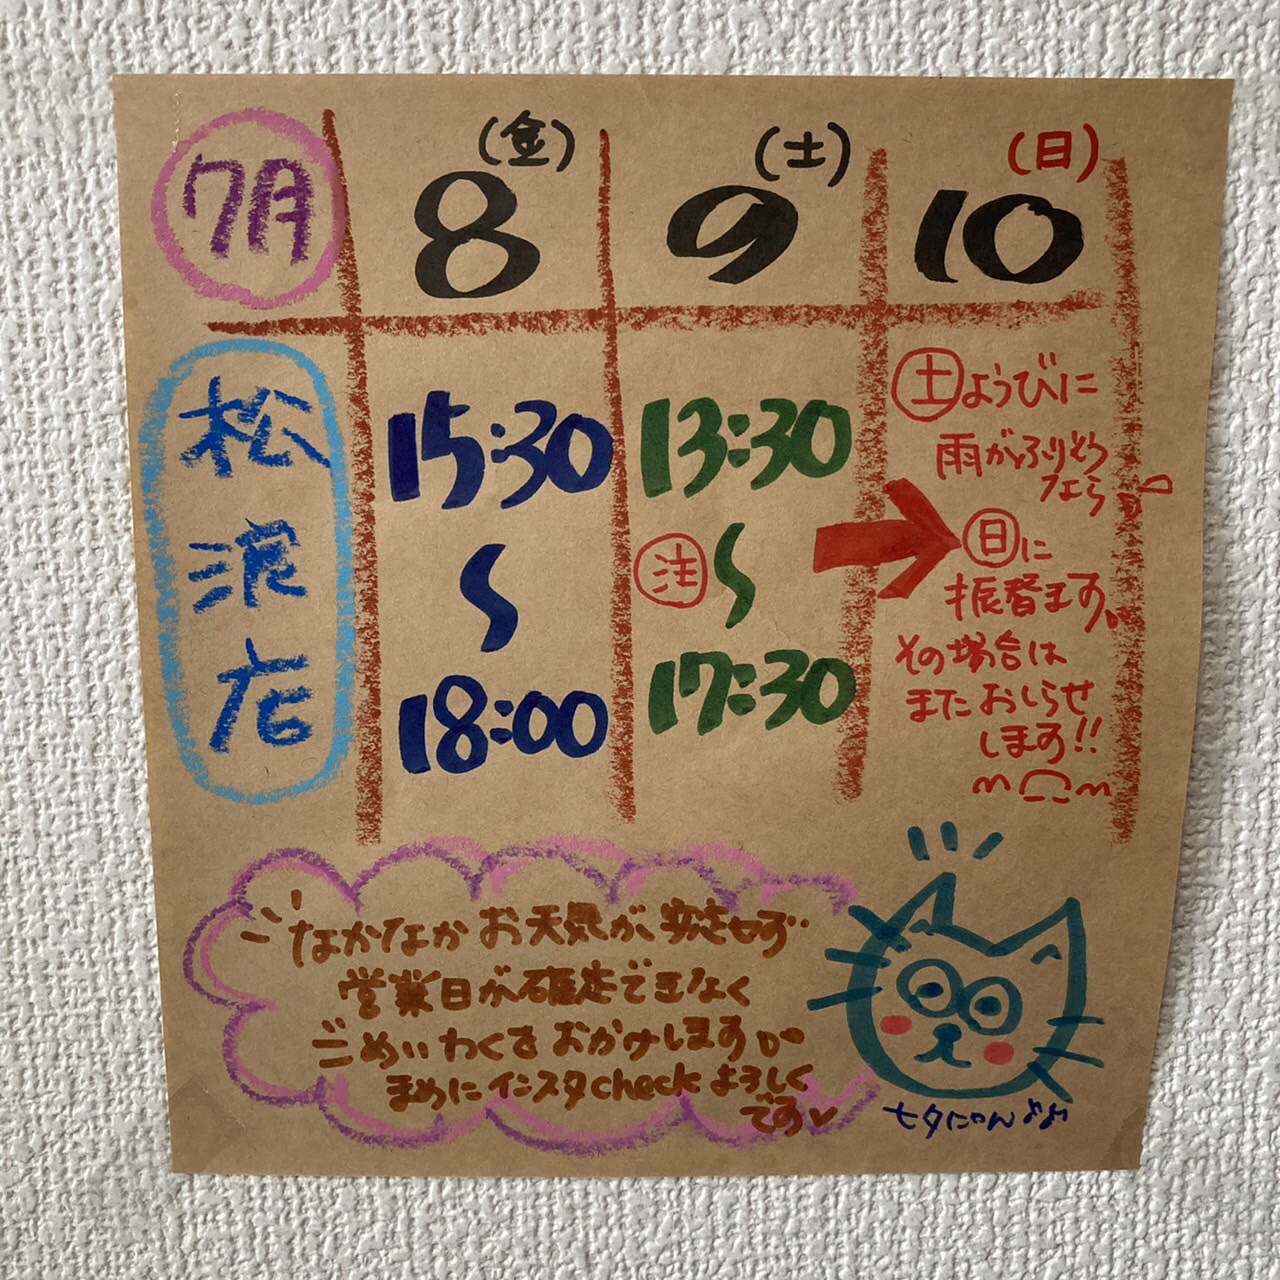 7月
(金)
8
(土)
9
(日)
10
松浪店
15:30
〜
18:00
13:30
注 〜
17:30
土ようびに
雨がふりそう
なら
日に
振替ます。
その場合は
またおしらせ
します!!
なかなかお天気が安定せず
営業日が確定できなく
ごめいわくをおかけしますが
まめにインスタcheckよろしく
です♥
七夕にゃん♪♪